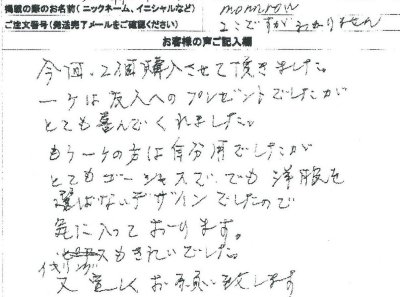 掲載の際のお名前(ニックネーム、イニシャルなど) momoron
ご注文番号(発送完了メールをご確認ください) ここですがわかりません
お客様の声ご記入欄
今回、2個購入させて頂きました。
一ケは友人へのプレゼントでしたが
とても喜んでくれました。
もう一ケの方は自分用でしたが
とてもゴージャスで、でも洋服を
選ばないデザインでしたので
気に入っております。
イヤリングもきれいでした。
又宜しくお願い致します